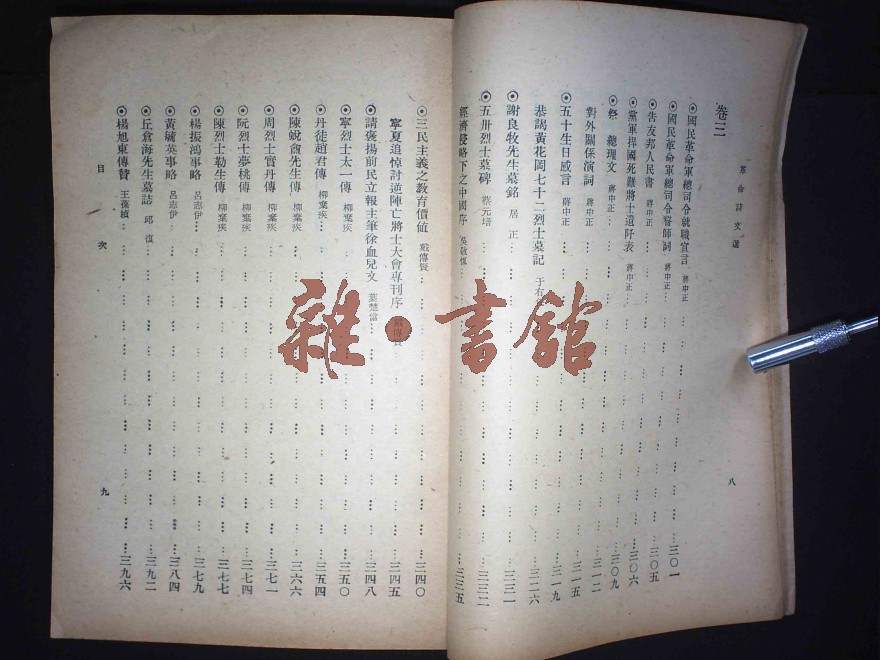 革命詩文選
卷三
⊙國民革命軍總司令就職宣言 蔣中正……三〇一
⊙國民革命軍總司令誓師詞 蔣中正……
⊙告友邦人民書 蔣中正……三〇五
⊙黨軍捍國死難將士遺阡表 蔣中正……三〇六
⊙祭 總理文 蔣中正……三〇九
對外關係演詞 蔣中正……三一二
⊙五十生日感言 蔣中正……三一五
恭謁黃花岡七十二烈士墓記 于右……三一九
⊙謝良牧先生墓銘 居 正……
⊙五卅烈士墓碑 蔡元培……
經濟侵略下之中國序 吳敬恆……三三五
八
⊙三民主義之教育價值 戴傳賢……三四〇
寧夏追悼討逆陣亡將士大會專刊序 戴傳賢……三四五
⊙請褒揚前民立報主筆徐血兒文 葉楚傖……三四八
⊙寧烈士太一傳 柳棄疾……三五〇
⊙丹徒趙君傳 柳棄疾……三五四
⊙陳蛻盦先生傳 柳棄疾……三六六
⊙周烈士實丹傳 柳棄疾……三七一
⊙阮烈士夢桃傳 柳棄疾……三七四
⊙陳烈士勒生傳 柳棄疾……三七七
⊙楊振鴻事略 呂志伊……三七九
⊙黃毓英事略 呂志伊……三八四
⊙丘倉海先生墓誌 邱 復……三九二
⊙楊旭東傳贊 王葆楨……三九六
目 次
九
雜·書館